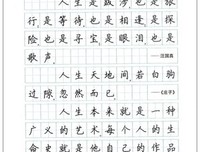 人生是跋涉也是旅
行是等待也是相逢是探
险也是寻宝是眼泪也是
歌声
——汪国真
人生天地间若白驹
过隙忽然而已
——《庄子》
人生本来就是一种
广义的艺术每个人的生
命史就是他自己的作品